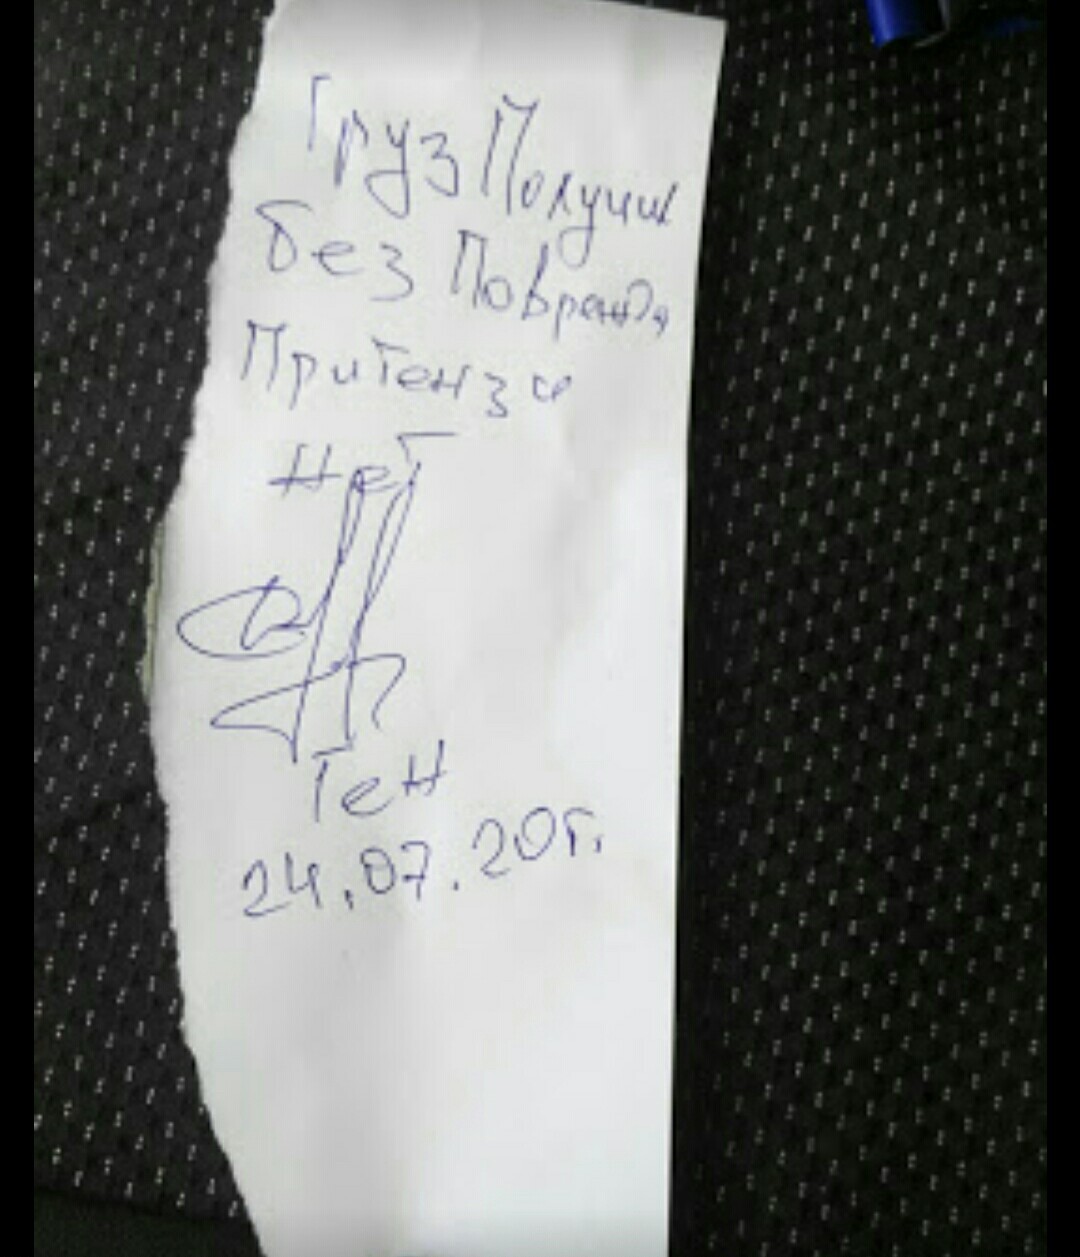 Груз Получил
без Поврежд,
Притензи
Нет
Ген
24.07.20г.